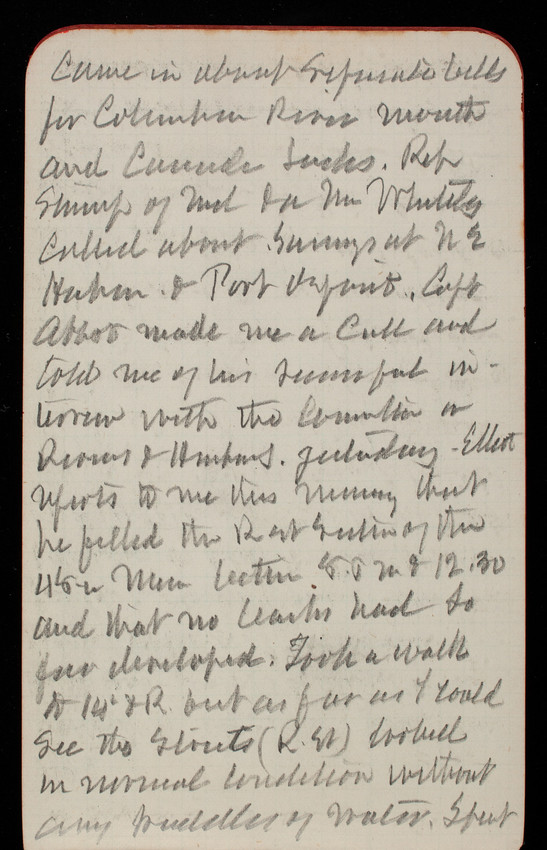 Came in about Separate bills
for Columbia River mouth
and Cascade Locks. Rep
Stump of Md & a Mr Whitely
called about Surveys at N E
Harbor & Port deposit. Capt
Abbot made me a Call and
told me of his successful in-
terview with the Committee on
Rivers & Harbors. yesterday - Elliot
reports to me this morning that
he filled the R st Section of the
48 in Main between 8. P m & 12.30
and that no leaks had so
far developed. Took a walk
to 14 & R. but as far as I could
See the Streets (R. St) looked
in normal condition without
any puddles of water. Spent